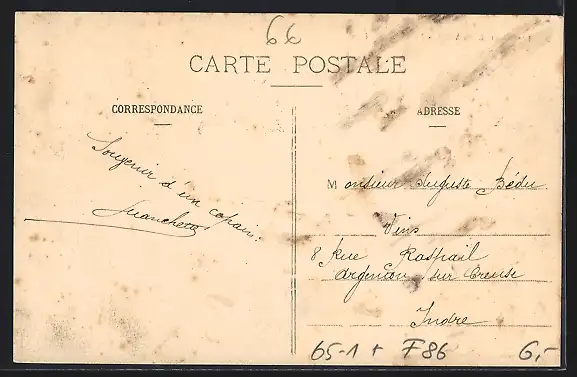 66
CARTE POSTALE
CORRESPONDANCE
ADRESSE
Souvenir d'un copain.
Monsieur Auguste Bédu
Vins
8 Rue Raspail
Argenton sur Creuse
Indre
65-1 + F86
6,-